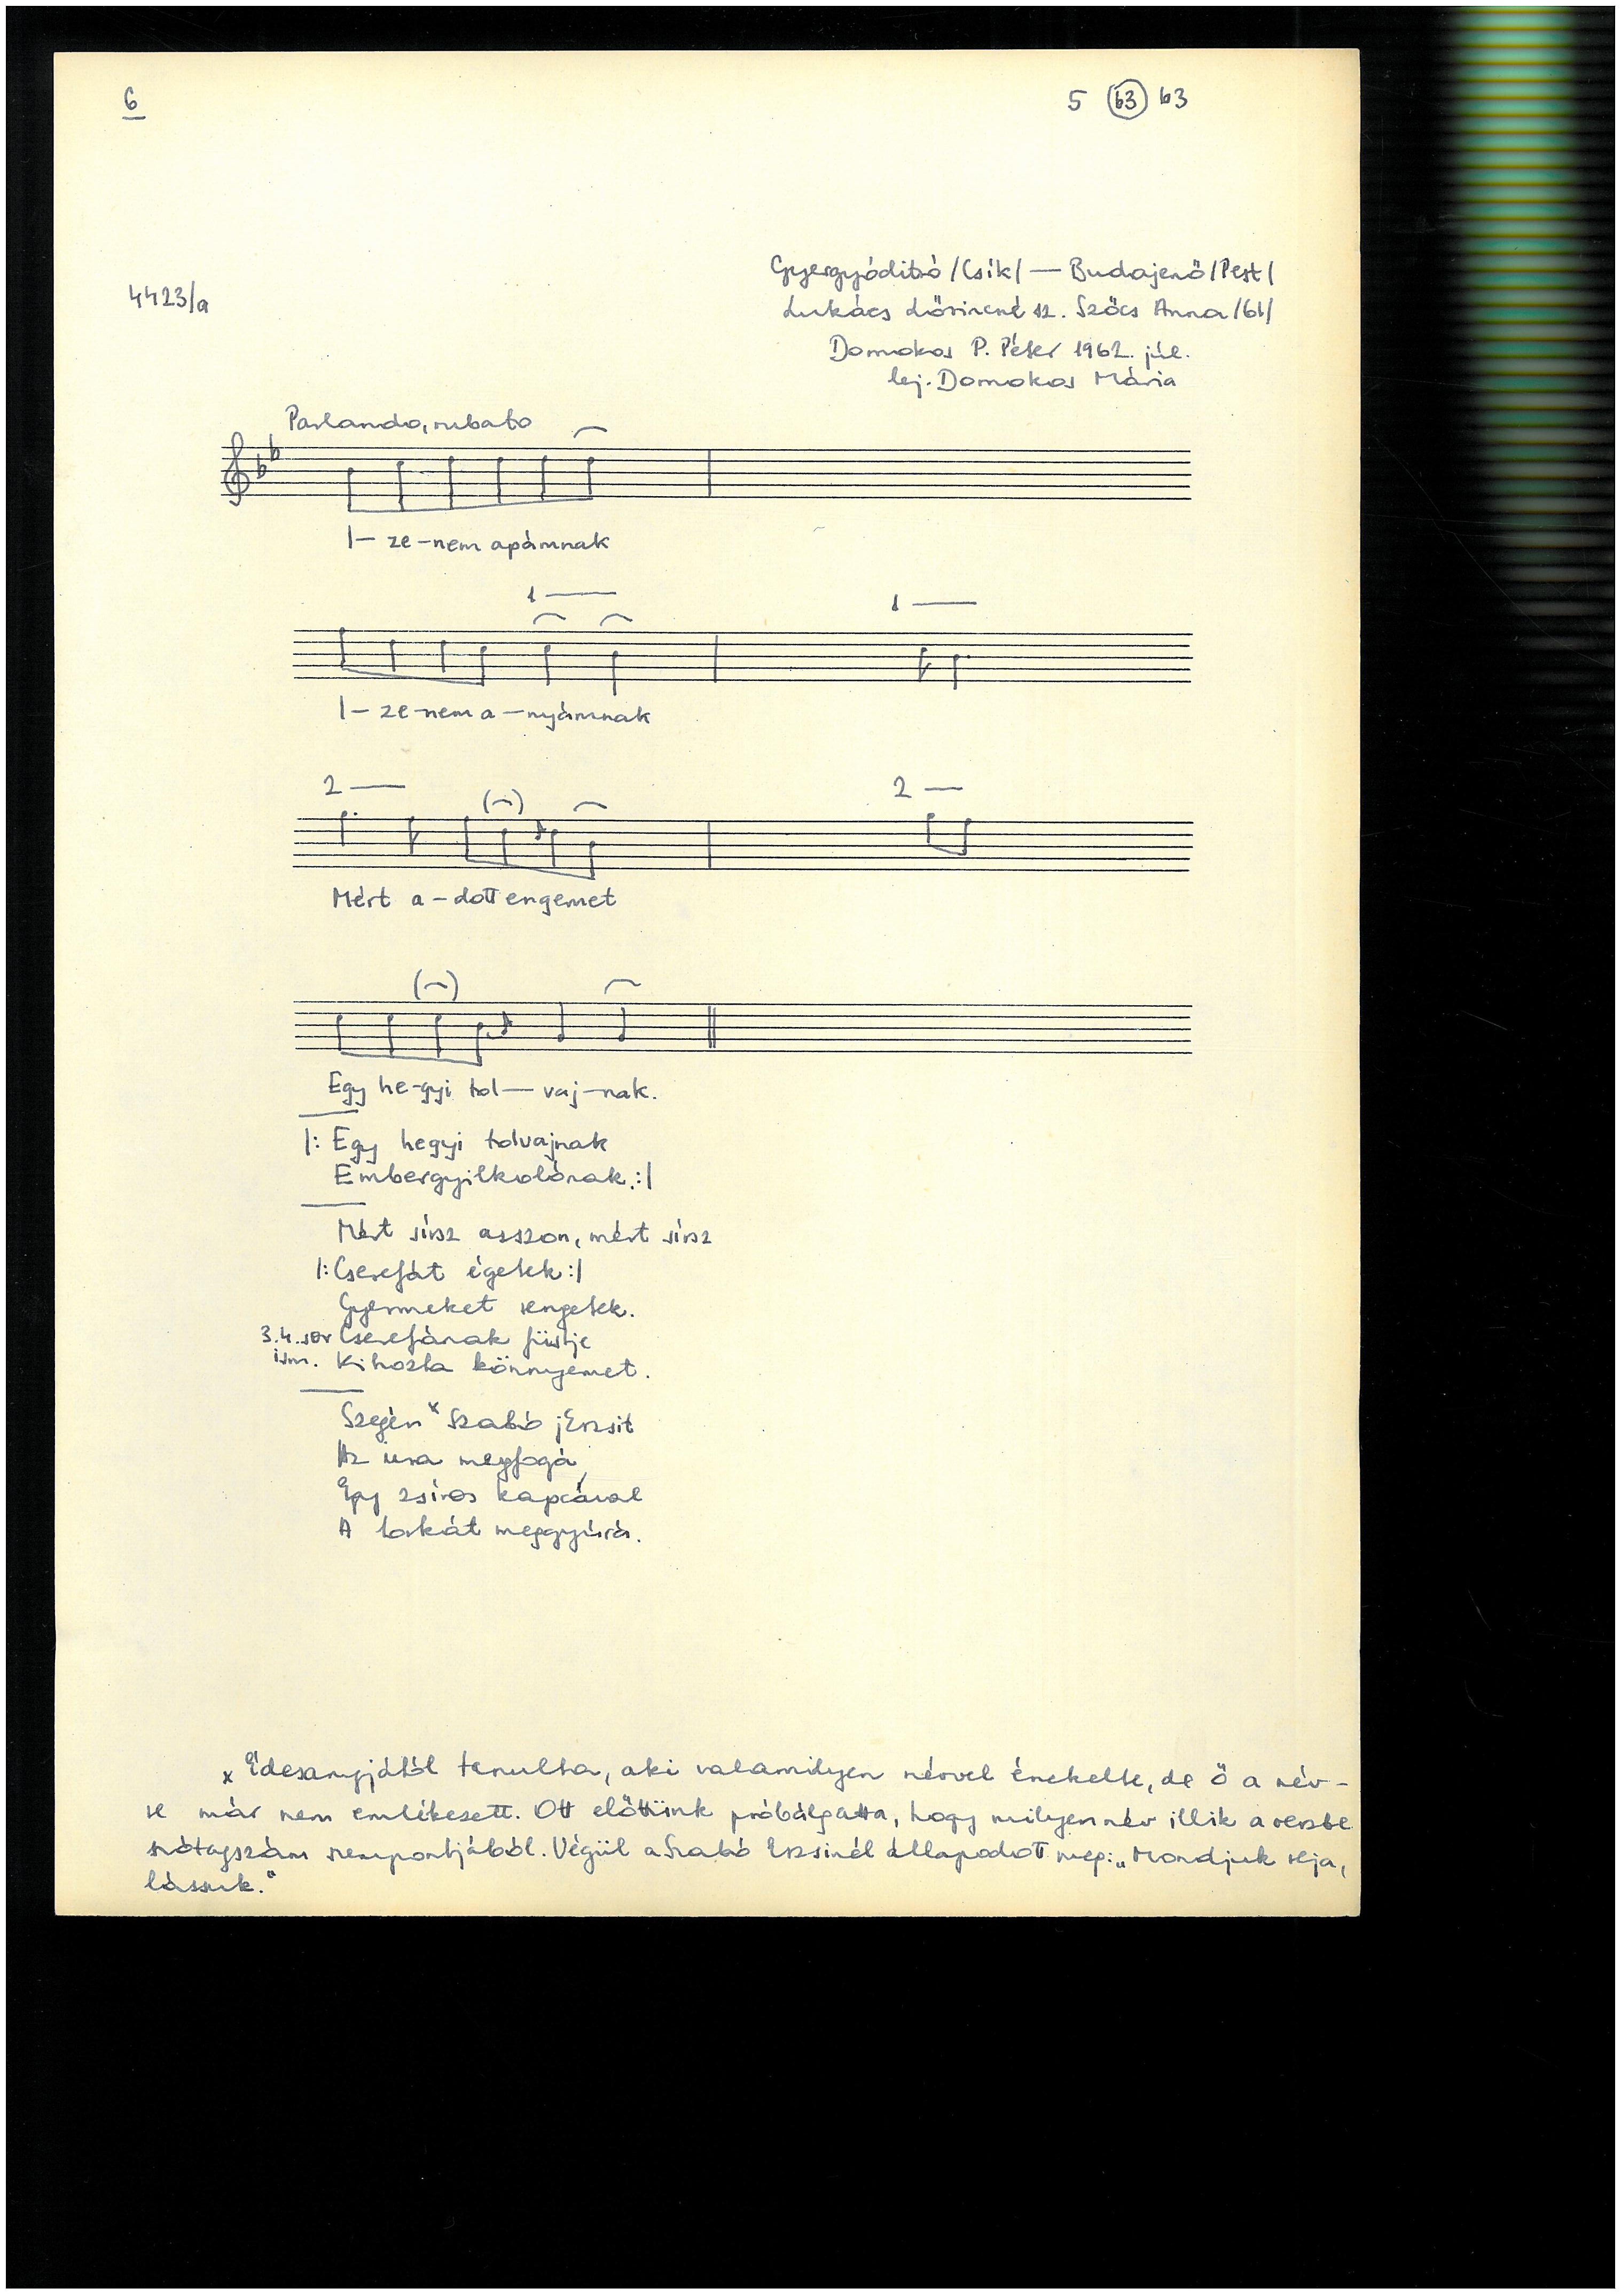 6
5 (63) 63
Gyergyóditró /Csík/ — Budajenő /Pest/
4423/a
Lukács Lőrincné sz. Szőcs Anna /61/
Domokos P. Péter 1962. júl.
lej. Domokos Mária
Parlando, rubato
I- ze-nem apámnak
1 1
I- ze-nem a-nyámnak
2 2
Mért a-dott engemet
Egy he-gyi tol-vaj-nak.
|: Egy hegyi tolvajnak
Embergyilkolónak. :|
Mért sírsz asszon, mért sírsz
|: Cserefát égetek :|
Gyermeket rengetek.
3.4. sor Cserefának füstje
ism. Kihozta könnyemet.
Szegén x Szabó jErzsit
Az ura megfogá,
Egy zsíros kapcával
A torkát meggyúrá.
x Édesanyjától tanulta, aki valamilyen névvel énekelte, de ő a név-
re már nem emlékezett. Ott előttünk próbálgatta, hogy milyen név illik a versbe
szótagszám szempontjából. Végül a Szabó Erzsinél állapodott meg: „Mondjuk reja,
lássuk."